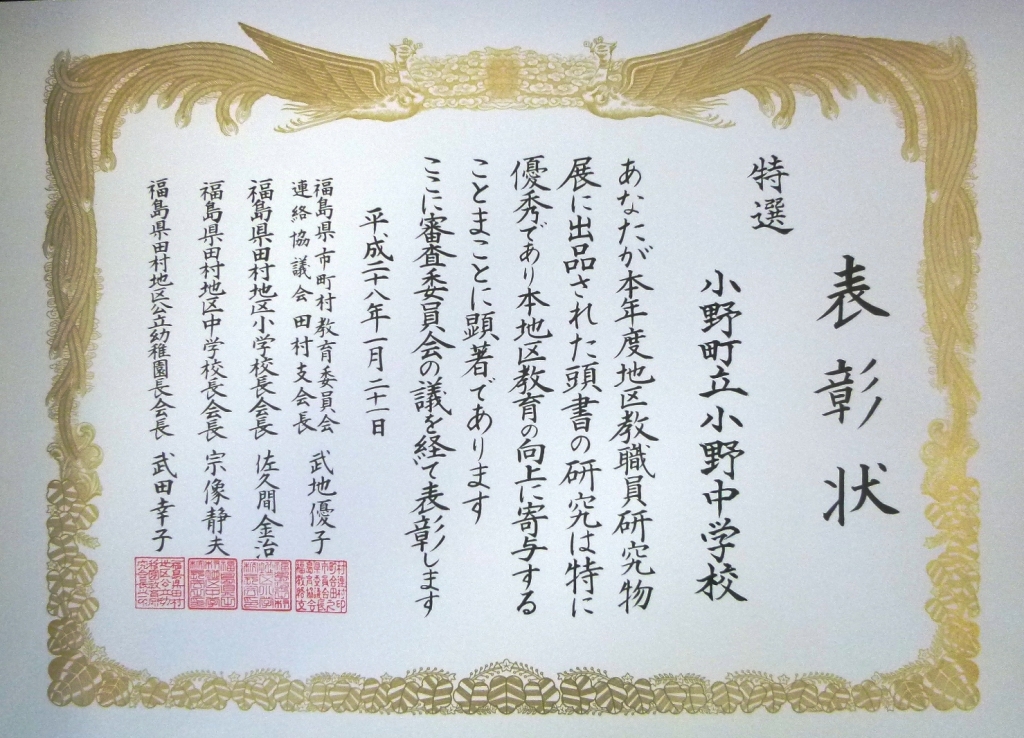 表彰状
特選
小野町立小野中学校
あなたが本年度地区教職員研究物
展に出品された頭書の研究は特に
優秀であり本地区教育の向上に寄与する
ことまことに顕著であります
ここに審査委員会の議を経て表彰します
平成二十八年一月二十一日
福島県市町村教育委員会
連絡協議会田村支会長 武地優子
福島県田村地区小学校長会長 佐久間金治
福島県田村地区中学校長会長 宗像静夫
福島県田村地区公立幼稚園長会長 武田幸子